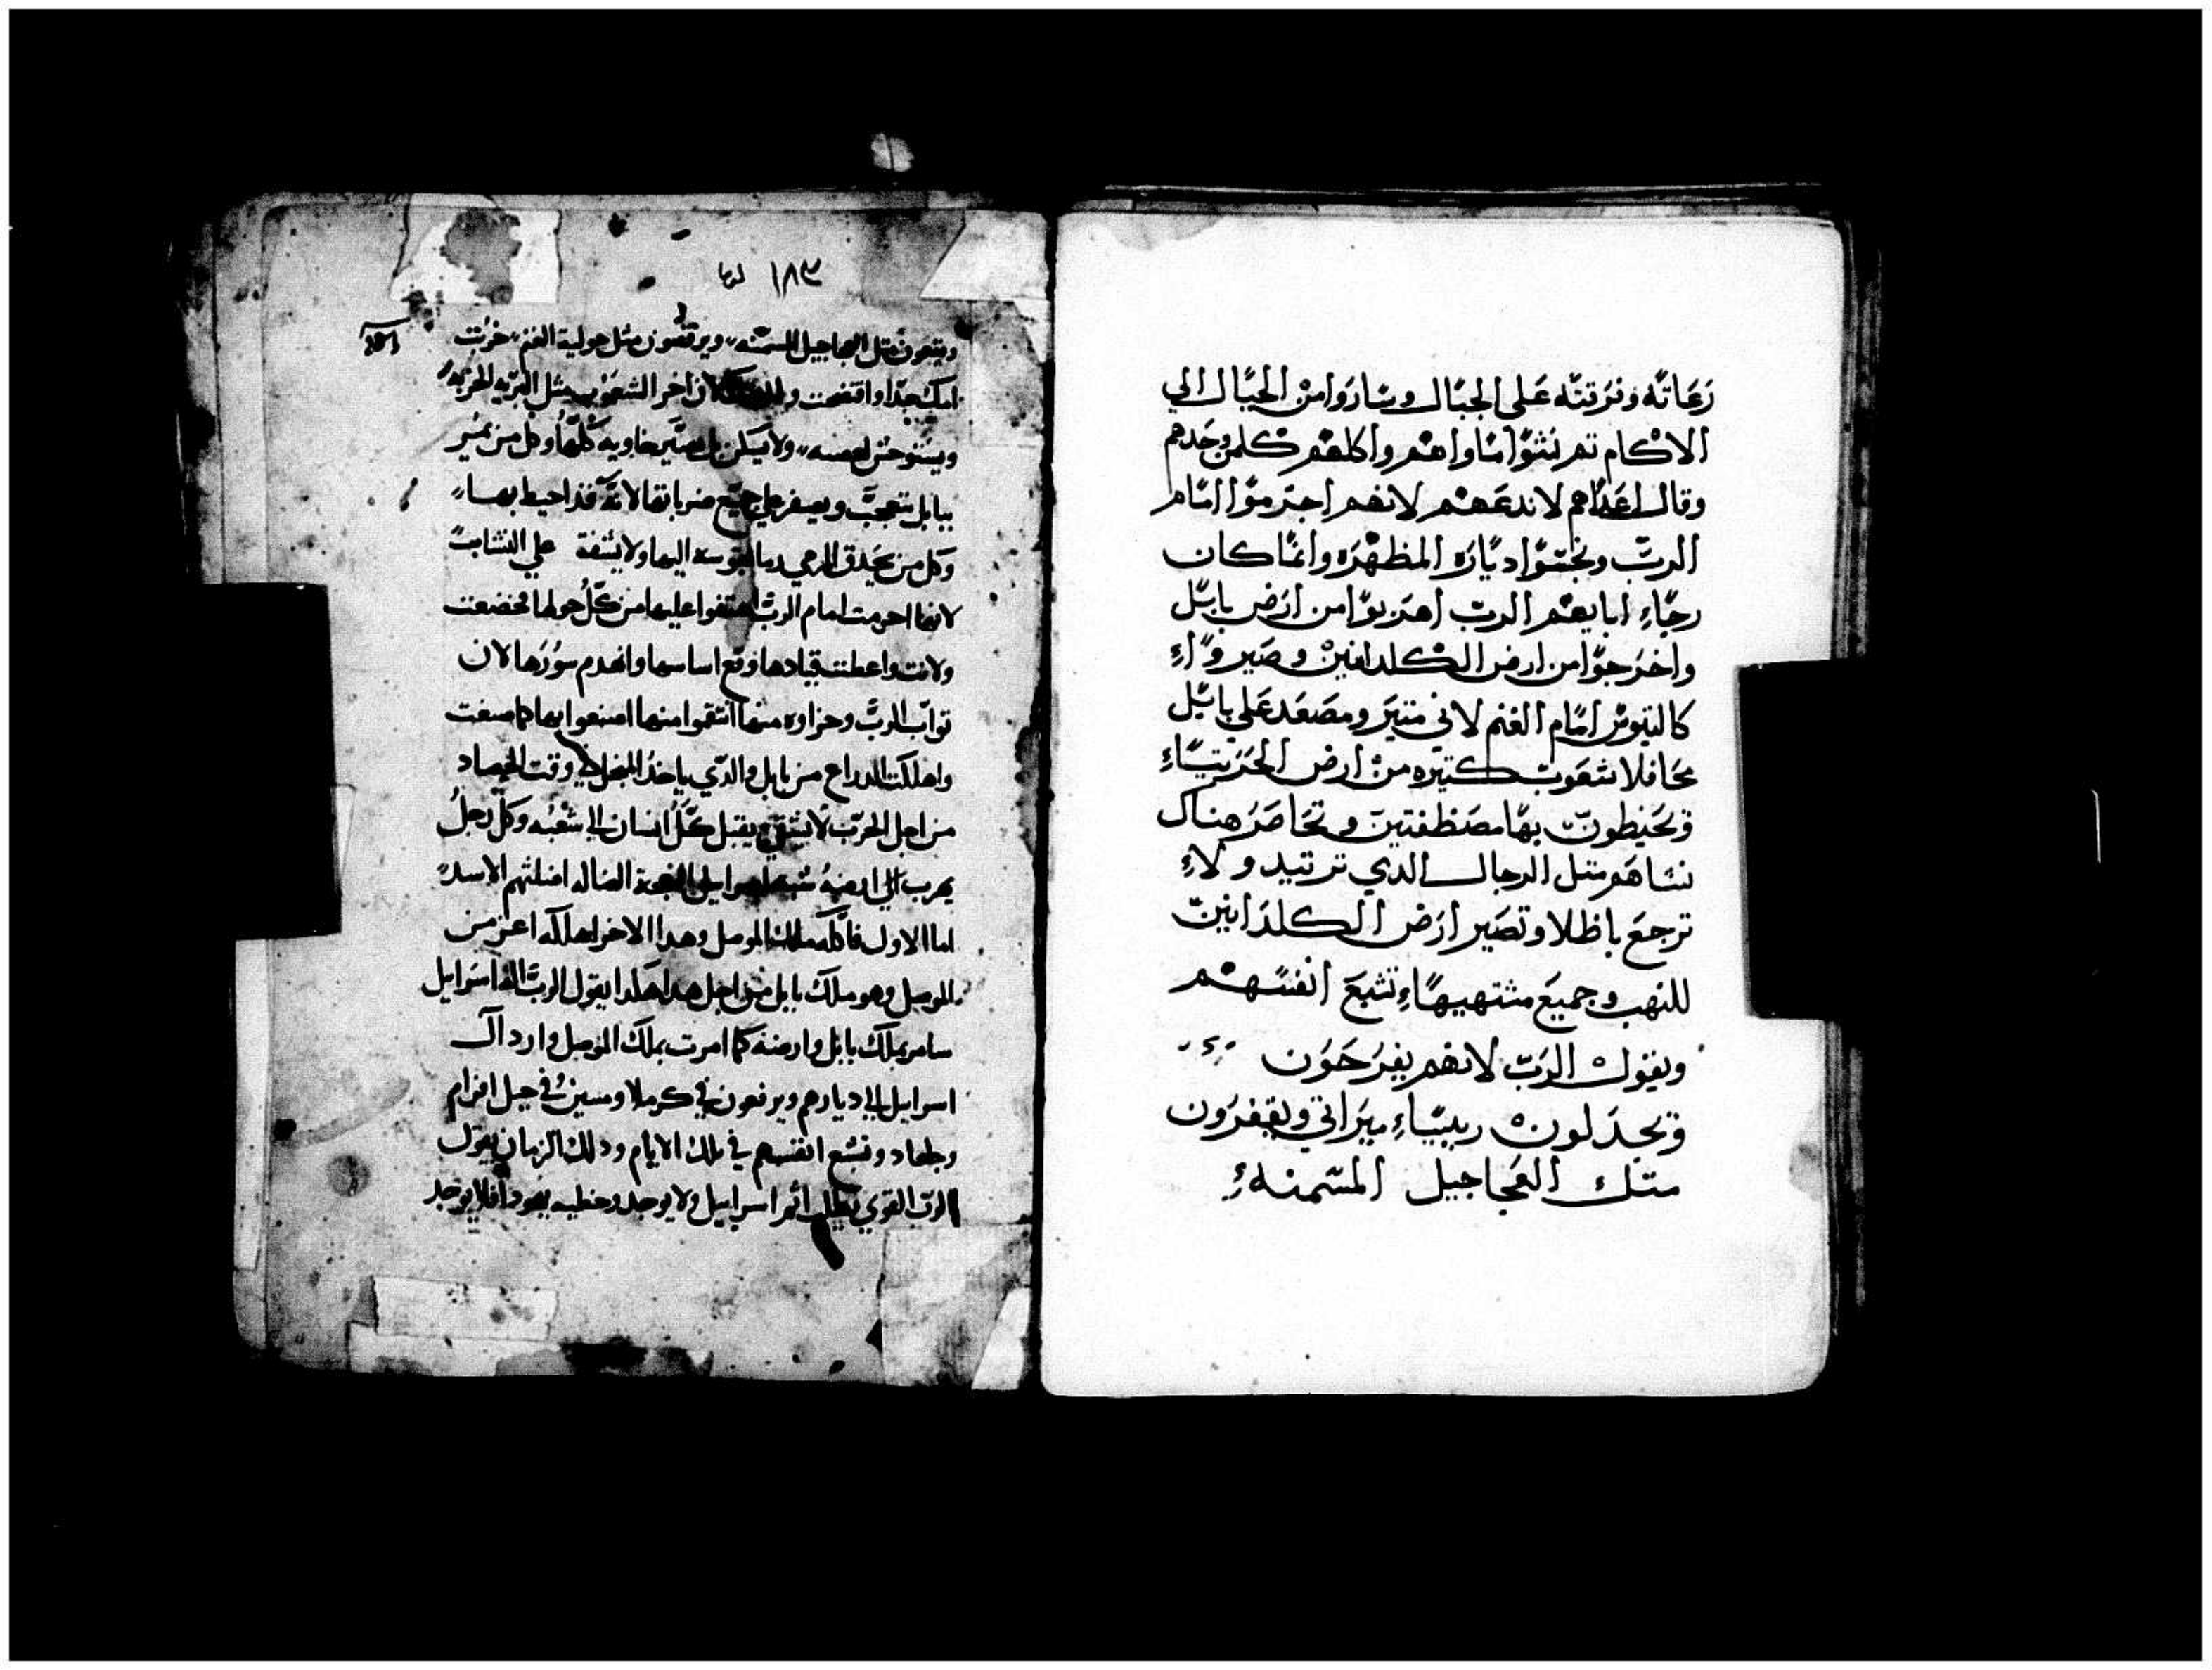 رعاته وفرقته على الجبال وساروا من الجبال الي
الاكام تم نسَوا ماواهم واكلهم كلمن وجدهم
وقال اعداهم لا ندعهم لانهم اجترموا امام
الرب ونجسوا دياره المطهره وانما كان
رجاء ابايهم الرب اهربوا من ارض بابل
واخرجوا من ارض الكلدانين وصيروا
كالتيوس امام الغنم لاني متير ومصعد علي بابل
محافلا شعوب كتيره من ارض الجربياء
فيحيطون بها وتحاصر هناك
نشاهم متل الرجال الدي ولا
ترجع باطلا وتصير ارض الكلدانين
للنهب وجميع مشتهيها تشبع انفسهم
ويقول الرب لانهم يفرحون
ويجدلون ميراتي ويقفزون
متل العجاجيل المسمنه
١٨٣ ارميا
ويتبعون متل العجاجيل المسمنه ويرقصون متل حولية الغنم خزيت
امك جدا وافتضحت لان اخر الشعوب متل البريه الخربه
ولا تسكن بل تصير خاويه كلها وكل من يمر
ببابل يتعجب ويصفر علي جميع ضرباتها لانه قد احيط بها
وكل من يحدق الرمي اليها ولا يشفق علي النشاب
لانها اجرمت امام الرب اهتفوا عليها من كل حولها فخضعت
ولانت واعطت قيادها وقع اساسها وانهدم سورها لان
تواب الرب وجزاوه منها انتقموا منها اصنعوا بها كما صنعت
واهلكت الزراع من بابل والدي ياخد المنجل في وقت الحصاد
من اجل الحرب يقبل كل انسان الي شعبه وكل رجل
يهرب الي ارضه النعجة الضاله اضلتهم الاسد
اما الاول فاكله ملك الموصل وهدا الاخر اهلكه اعز من
الموصل وهو ملك بابل من اجل هدا هكدا يقول الرب اله اسرايل
سامر بملك بابل وارضه كما امرت بملك الموصل وارد ال
اسرايل الي ديارهم ويرعون في كرملا ومسين في جبل افرام
وجلعاد وتشبع انفسهم في تلك الايام ودلك الزمان يقول
الرب القوي يطلب اتم اسراييل ولا يوجد وخطيه يهودا فلا يوجد